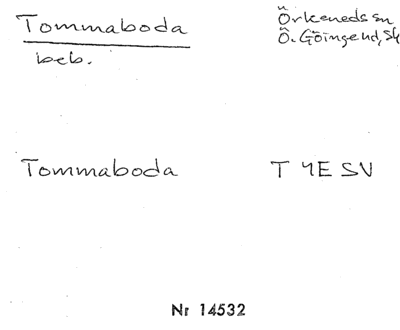 Tommaboda
beb.
Örkeneds sn
Ö. Göinge hd, Sk
Tommaboda
T 4E SV
Nr 14532